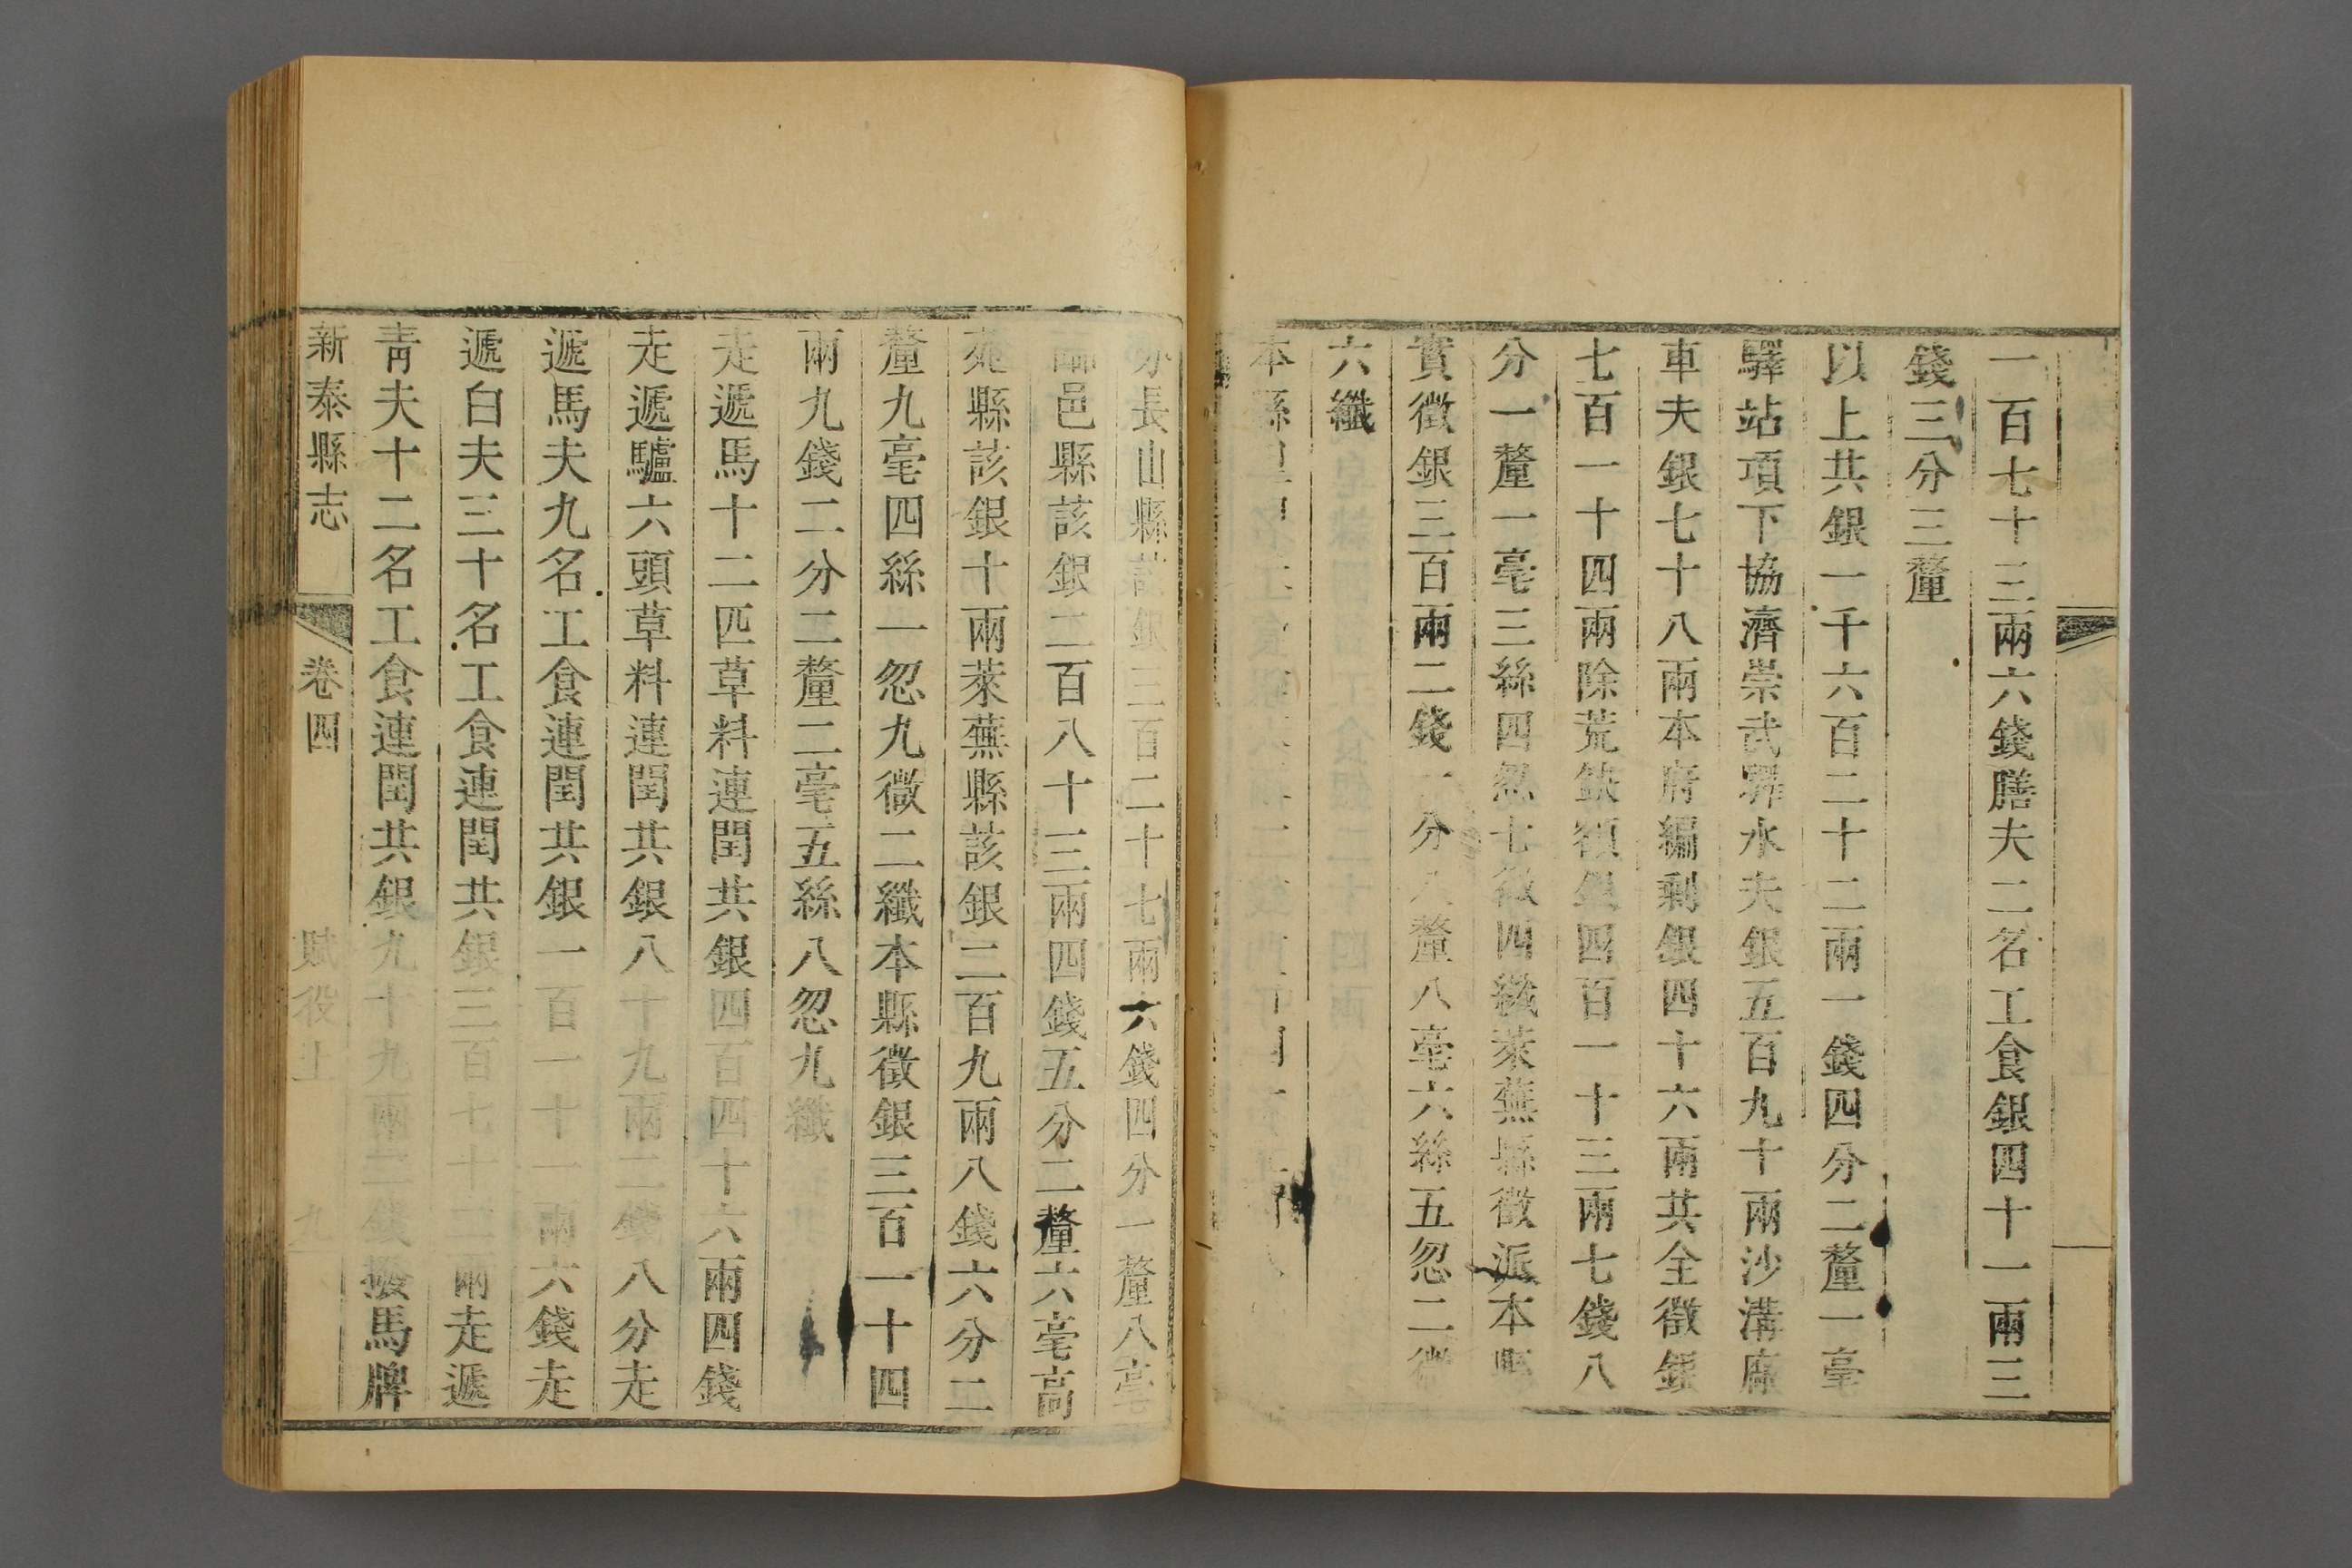 一百七十三兩六錢膳夫二名工食銀四十一兩三
錢三分三釐
以上共銀一千六百二十二兩一錢四分二釐一毫
驛站項下協濟崇武驛水夫銀五百九十兩沙溝廠
車夫銀七十八兩本府編剩銀四十六兩共全徵銀
七百一十四兩除荒缺額銀四百一十三兩七錢八
分一釐一毫三絲四忽七微四纖萊蕪縣徵派本縣
實徵銀三百兩二錢一分八釐八毫六絲五忽二微
六纖
本縣
長山縣該銀三百二十七兩六錢四分一釐八毫
臨邑縣該銀二百八十三兩四錢五分二釐六毫高
苑縣該銀十兩萊蕪縣該銀二百九兩八錢六分二
釐九毫四絲一忽九微二纖本縣徵銀三百一十四
兩九錢二分二釐二毫五絲八忽九纖
走遞馬十二匹草料連閏共銀四百四十六兩四錢
走遞驢六頭草料連閏共銀八十九兩二錢八分走
遞馬夫九名工食連閏共銀一百一十一兩六錢走
遞白夫三十名工食連閏共銀三百七十二兩走遞
青夫十二名工食連閏共銀九十九兩二錢撥馬牌
新泰縣志 卷四 賦役上 九